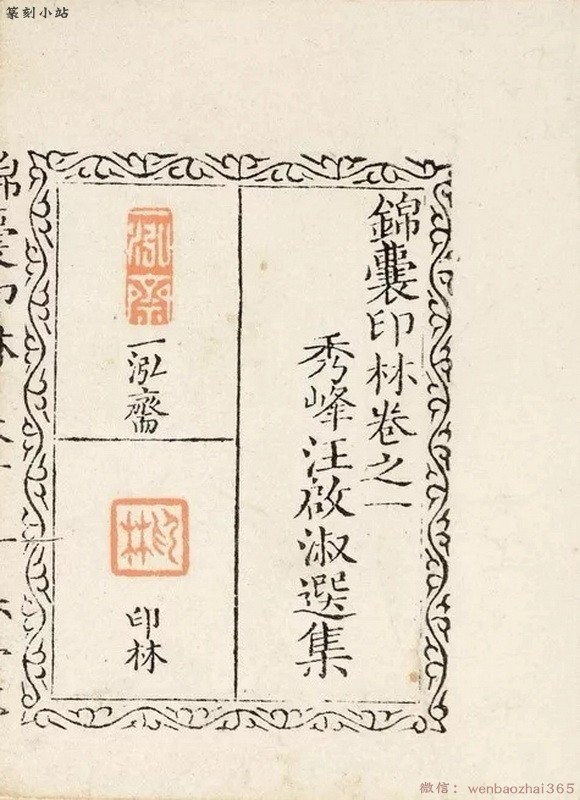 篆刻小站
錦囊印林卷之一
秀峰汪啟淑選集
一泓齋
一泓齋
印林
印林
錦囊印林
微信：wenbaozhai365